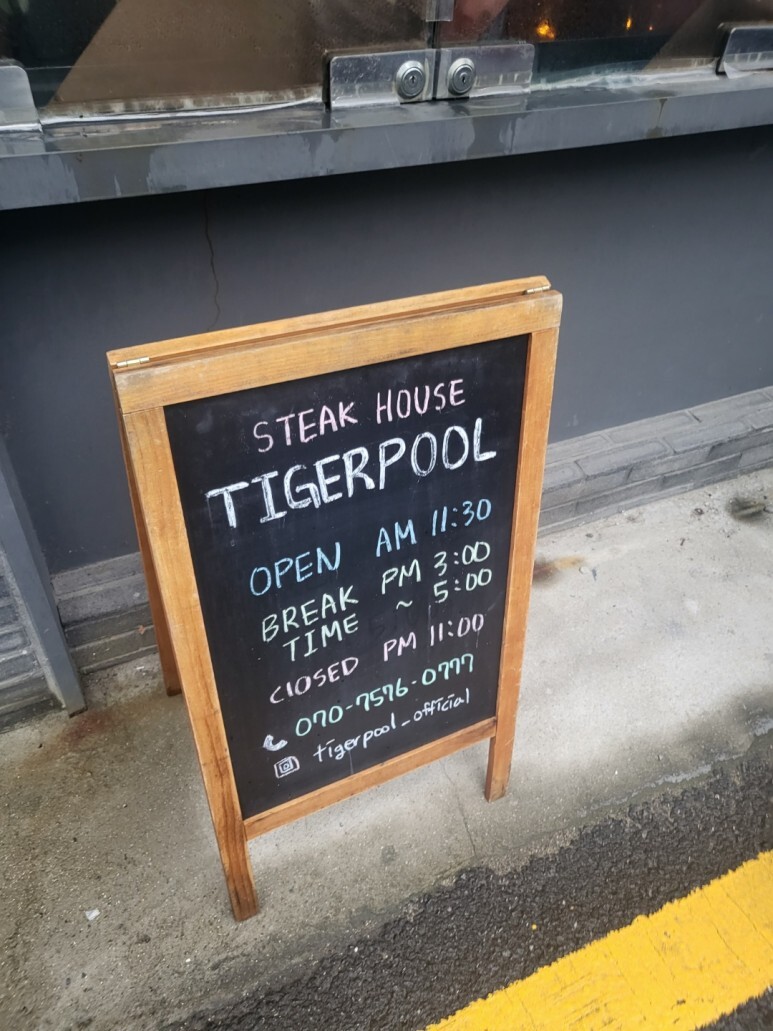 STEAK HOUSE
TIGERPOOL
OPEN AM 11:30
BREAK PM 3:00
TIME ~ 5:00
CLOSED PM 11:00
070-7576-0777
tigerpool_official